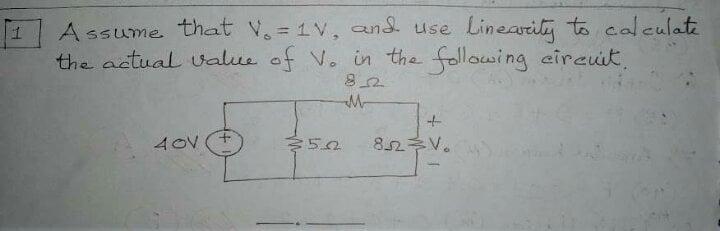 1 Assume that V₀ = 1V, and use Linearity to calculate
the actual value of V₀ in the following circuit.
8Ω
+
40V + - 5Ω 8Ω V₀
-